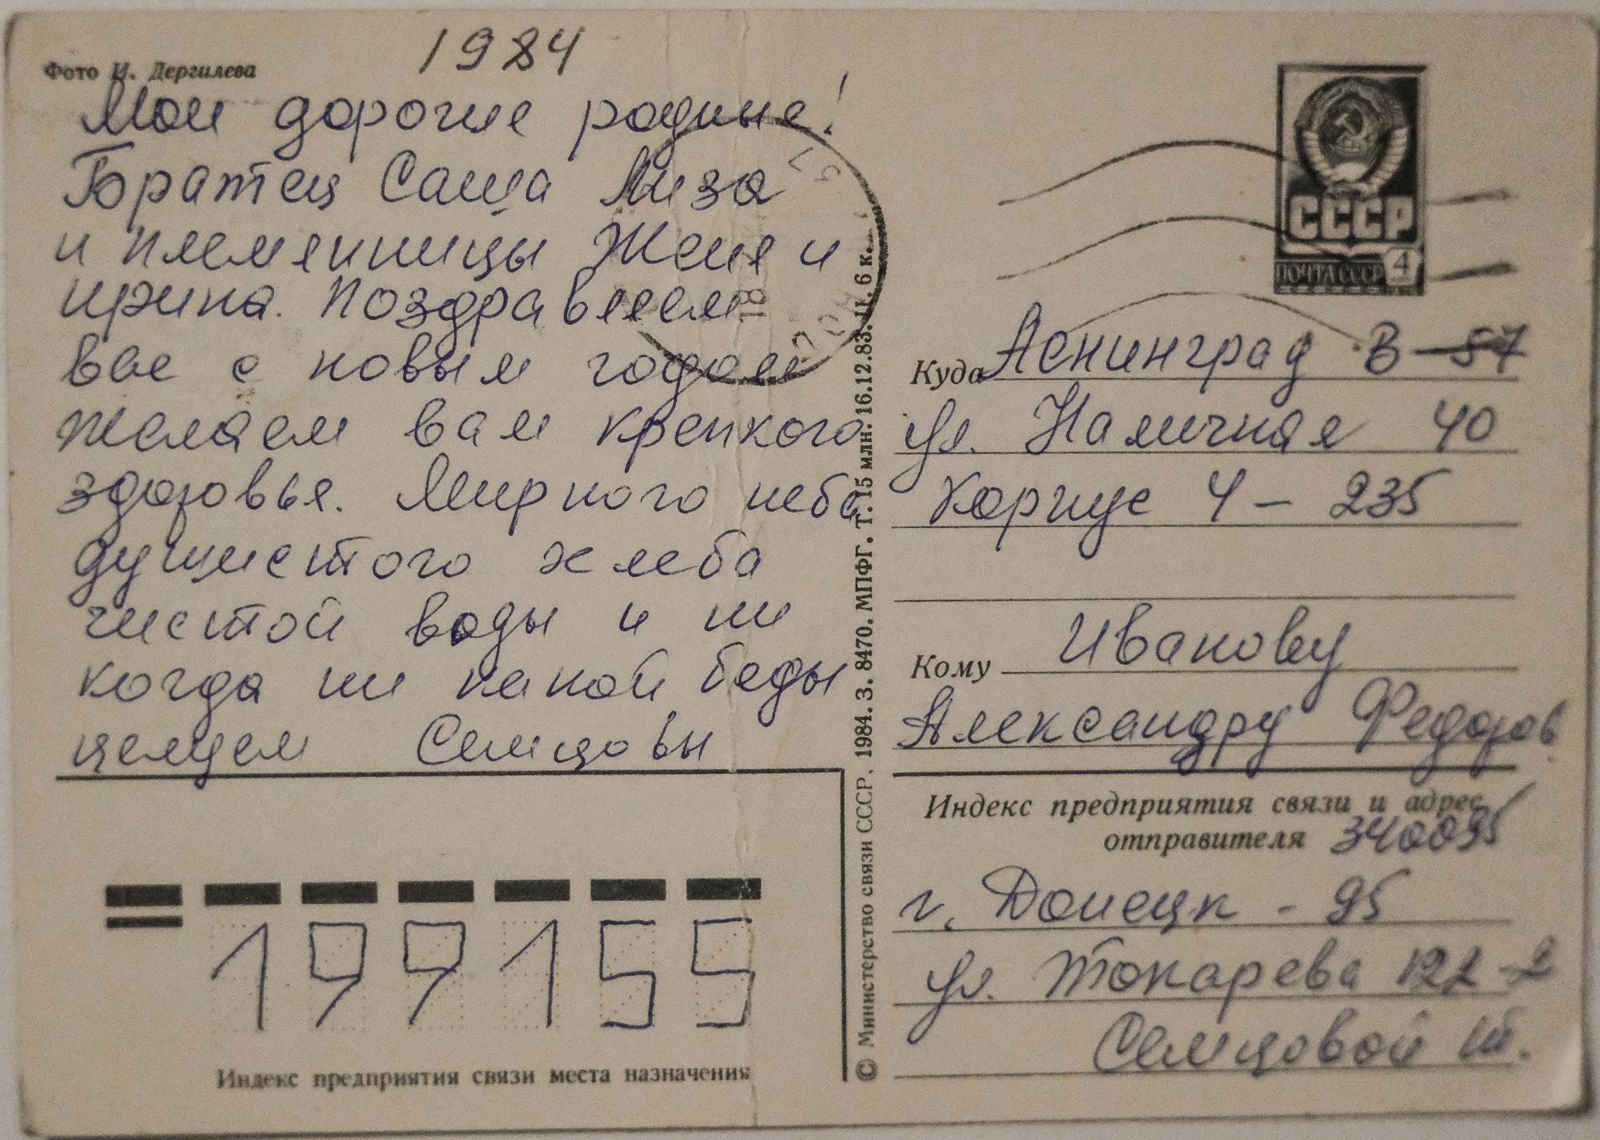 1984
Фото И. Дергилева
Мои дорогие родные!
Братец Саша Лиза
и племянницы Женя и
Ирина. Поздравляем
вас с новым годом
желаем вам крепкого
здоровья. Мирного неба
душистого хлеба
чистой воды и ни
когда ни какой беды
целуем Семцовы
199155
Индекс предприятия связи места назначения
© Министерство связи СССР, 1984. З. 8470. МПФГ. Т. 15 млн. 16.12.83. Ц. 6 к.
СССР
ПОЧТА СССР 4
Куда Ленинград В-57
ул. Наличная 40
Корпус 4 – 235
Кому Иванову
Александру Федоров
Индекс предприятия связи и адрес
отправителя 340095
г. Донецк - 95
ул. Токарева 122-2
Семцовой Т.